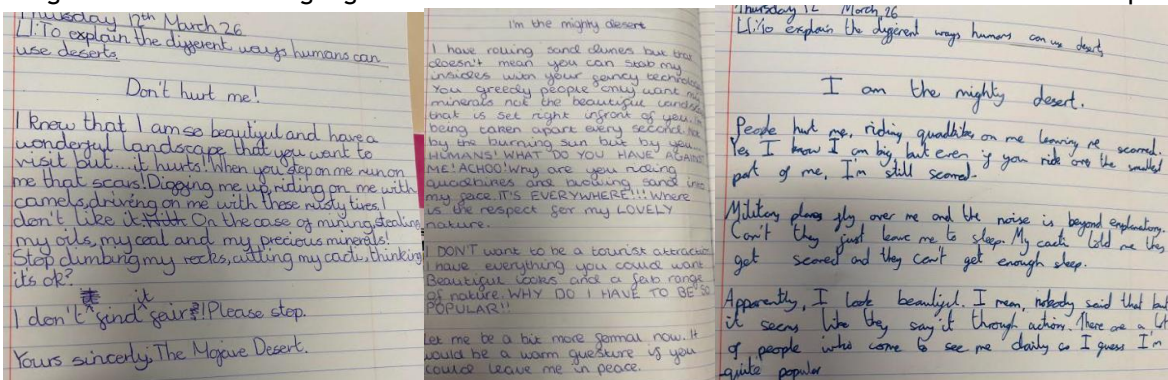 Thursday 12th March 26
LI: To explain the different ways humans can
use deserts.
Don't hurt me!
I know that I am so beautiful and have a
wonderful landscape that you want to
visit but... it hurts! When you step on me run on
me that scars! Digging me up, riding on me with
camels, driving on me with these rusty tires. I
don't like it. On the case of mining, stealing
my oils, my coal and my precious minerals!
Stop climbing my rocks, cutting my cacti, thinking
its ok?
I don't find it fair!! Please stop.
Yours sincerly, The Mojave Desert.
I'm the mighty desert
I have rolling sand dunes but that
doesn't mean you can stab my
insides with your fancy
You greedy people only want my
minerals not the beautiful
that is set right infront of you.
being taken apart every second. Not
by the burning sun but by you
HUMANS! WHAT DO YOU HAVE AGAINST
ME! ACHOO! Why are you riding
quadbikes and blowing sand into
my face. IT'S EVERYWHERE!!! Where
is the respect for my LOVELY
nature.
I DON'T want to be a tourist
I have everything you could want
Beautiful looks and a fab range
of nature. WHY DO I HAVE TO BE SO
POPULAR!!
Let me be a bit more formal now. It
would be a warm guesture if you
could leave me in peace.
Thursday 12 March 26
LI: To explain the different ways humans can use desert
I am the mighty desert.
People hurt me, riding quadbikes on me leaving me scarred.
Yes I know I am big, but even if you ride over the smallest
part of me, I'm still scarred.
Military planes fly over me and the noise is beyond
Can't they just leave me to sleep. My cacti told me they
get scared and they can't get enough sleep.
Apparently, I look beautiful. I mean, nobody said that but
it seems like they say it through actions. There are a lot
of people who come to see me daily so I guess I'm
quite popular